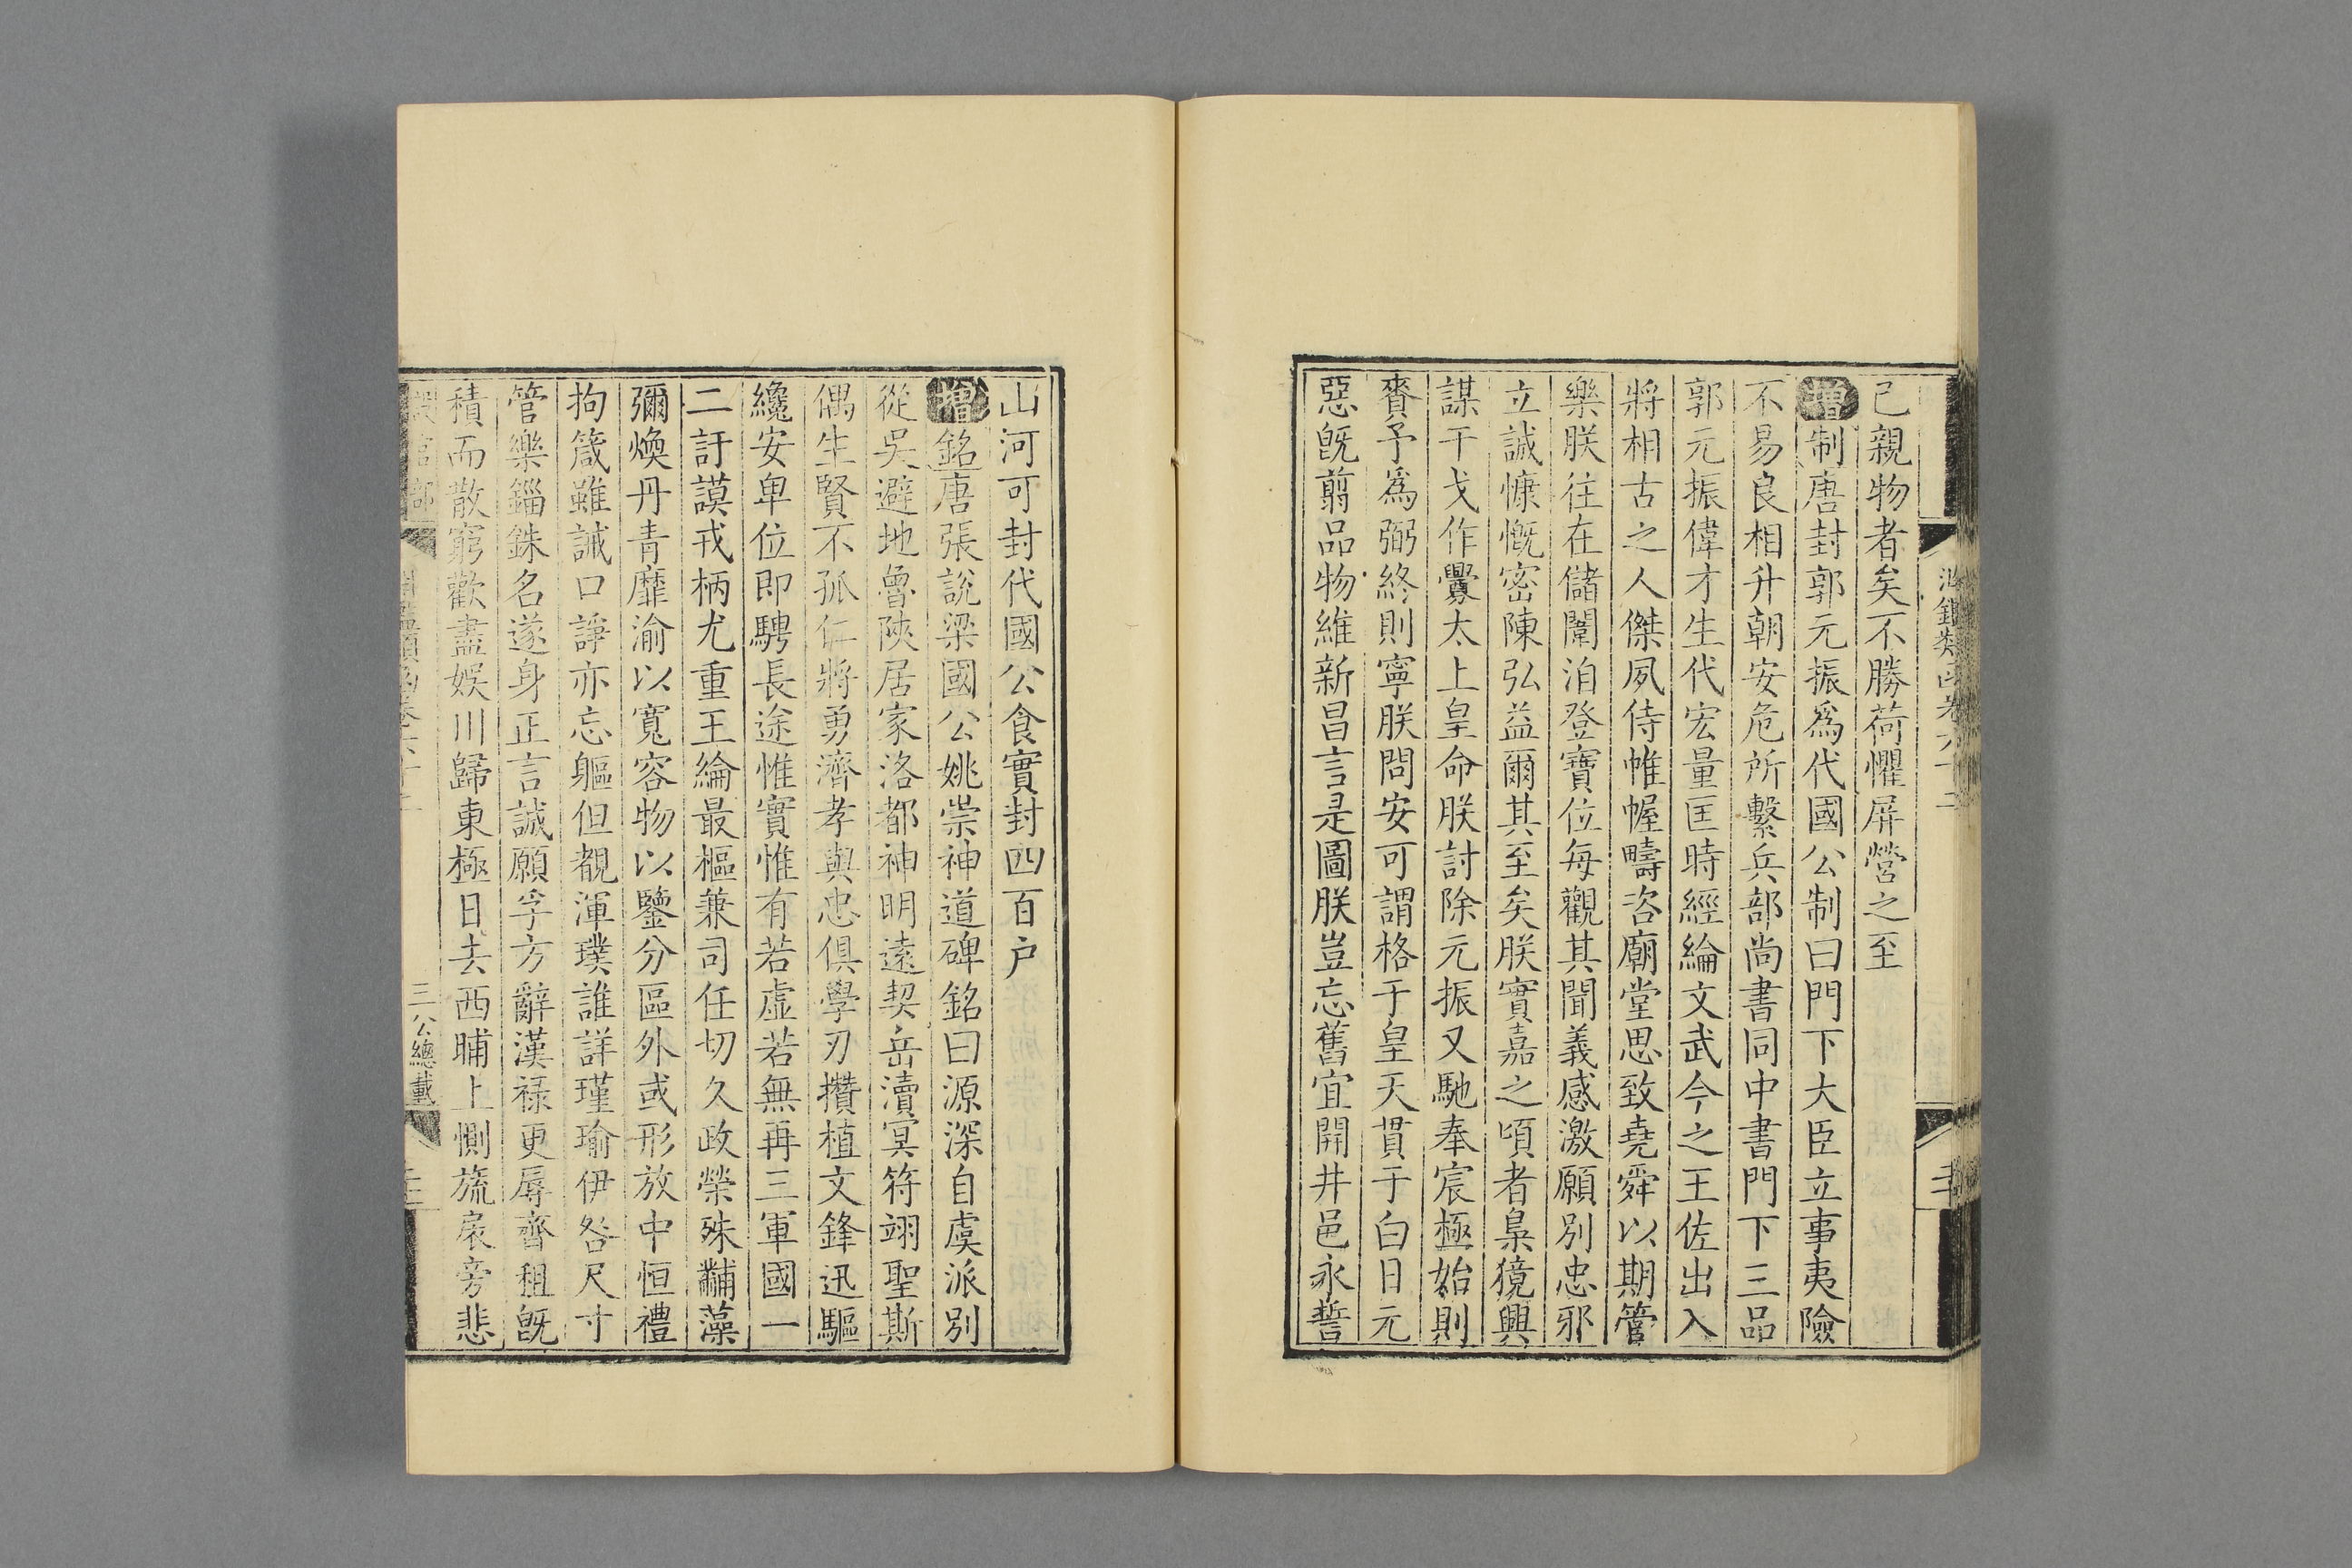 己親物者矣不勝荷懼屏營之至
增制唐封郭元振爲代國公制曰門下大臣立事夷險
不易良相升朝安危所繫兵部尚書同中書門下三品
郭元振偉才生代宏量匡時經綸文武今之王佐出入
將相古之人傑夙侍帷幄疇咨廟堂思致堯舜以期管
樂朕往在儲闈洎登寶位每觀其聞義感激願別忠邪
立誠慷慨密陳弘益爾其至矣朕實嘉之頃者梟獍興
謀干戈作釁太上皇命朕討除元振又馳奉宸極始則
賚予爲弼終則寧朕問安可謂格于皇天貫于白日元
惡旣翦品物維新昌言是圖朕豈忘舊宜開井邑永誓
山河可封代國公食實封四百户
增銘唐張說梁國公姚崇神道碑銘曰源深自虞派別
從吳避地魯陝居家洛都神明遠契岳瀆冥符翊聖斯
偶生賢不孤仁將勇濟孝與忠俱學刃攢植文鋒迅驅
纔安卑位即騁長途惟實惟有若虛若無再三軍國一
二訏謨戎柄尤重王綸最樞兼司任切久政榮殊黼藻
彌煥丹青靡渝以寬容物以鑒分區外或形放中恒禮
拘箴雖誡口諍亦忘軀但覩渾璞誰詳瑾瑜伊咎尺寸
管樂錙銖名遂身正言誠願孚方辭漢祿更辱齊租旣
積而散窮歡盡娛川歸東極日去西晡上惻旒扆旁悲
三公總載